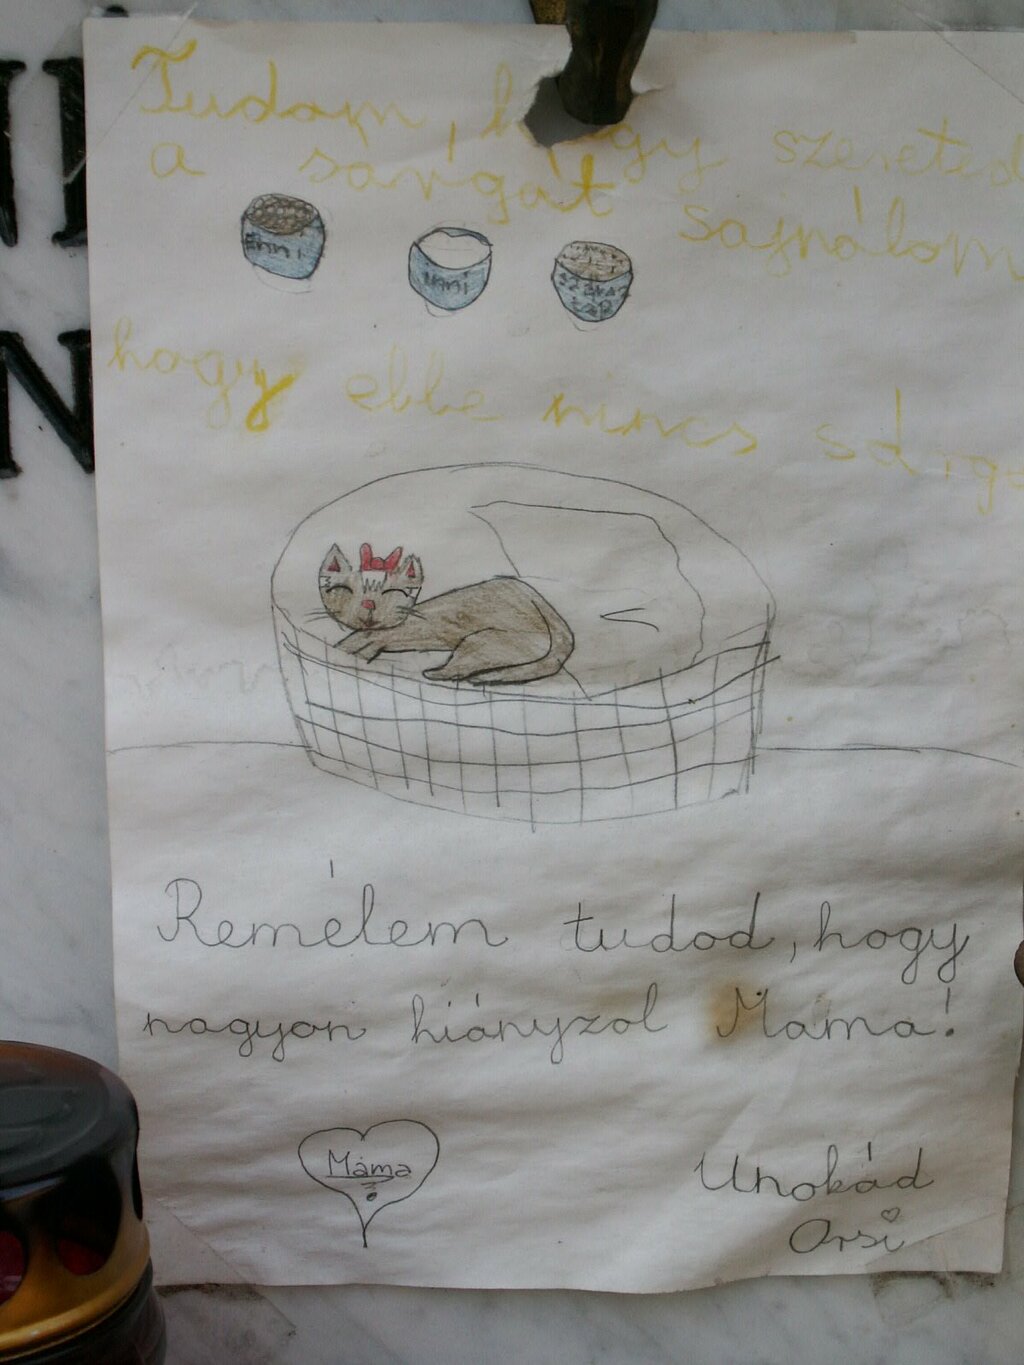 Tudom, hogy szereted
a sárgát sajnálom
Enni
inni
hogy ebbe nincs sárga
Remélem tudod, hogy
nagyon hiányzol Mama!
Mama
Unokád
Orsi
N